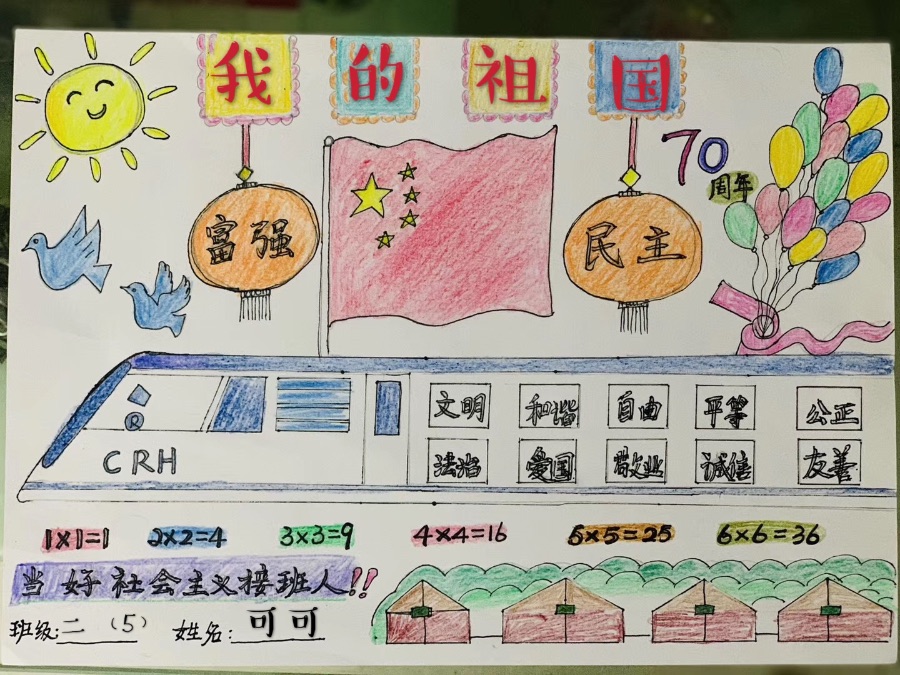 我的祖国
70
周年
富强
民主
文明 和谐 自由 平等 公正
法治 爱国 敬业 诚信 友善
CRH
1×1=1 2×2=4 3×3=9 4×4=16 5×5=25 6×6=36
当好社会主义接班人!!
班级:二(5) 姓名:可可